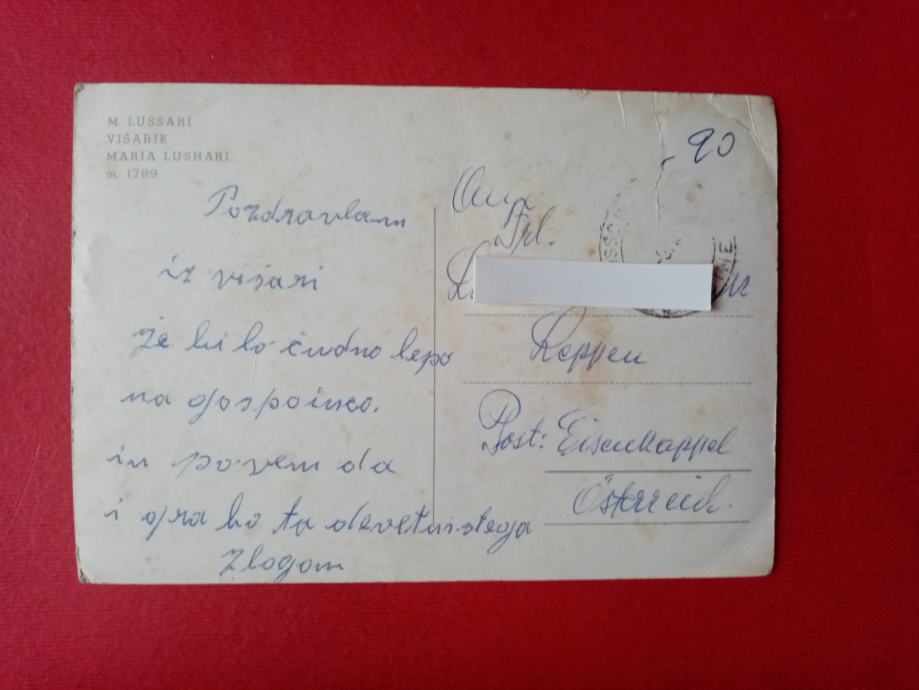 M. LUSSARI
VIŠARJE
MARIA LUSHARI
m. 1789
Pozdravlam
iz višari
je bi lo čudno lepo
na gospoinco.
in povem da
i gra bo ta devetnistega
Zlogom
-90
Frl.
Leppen
Post: Eisenkappel
Österreich.